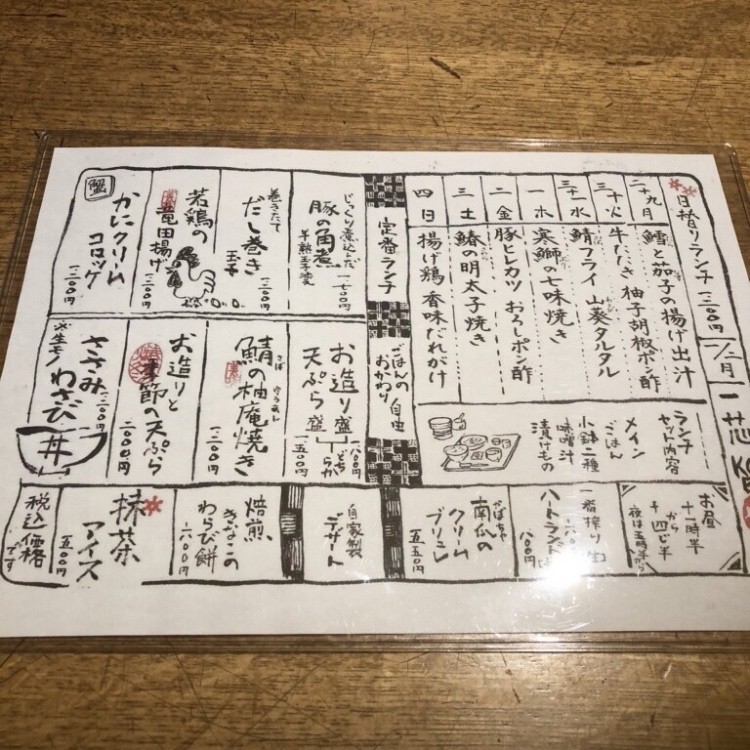 日替りランチ 一二〇〇円
一/二月
一芯
二十九月 鱈と茄子の揚げ出汁
三十火 牛たたき 柚子胡椒ポン酢
三十一水 鯖フライ 山葵タルタル
一木 寒鰤の七味焼き
二金 豚ヒレカツ おろしポン酢
三土 鰆の明太子焼き
四日 揚げ鶏 香味だれがけ
ランチセット内容
メイン
ごはん
小鉢二種
味噌汁
漬けもの
定番ランチ
ごはんの おかわり 自由
じっくり煮込んだ
豚の角煮
半熟玉子
一七〇〇円
巻きたて
だし巻き
玉子
一二〇〇円
若鶏の
竜田揚げ
一二〇〇円
蟹
かにクリーム
コロッケ
一二〇〇円
お造り盛 一八〇〇円
天ぷら盛 一五〇〇円
どちらか
さば ゆうあん
鯖の柚庵焼き
一二〇〇円
お造りと
季節の天ぷら
二〇〇〇円
ささみ
わさび
丼
一二〇〇円
※生モノ
お昼
十一時半
から
十四じ半
夜は五時半から
一番搾り 生
六〇〇円
ハートランド
八〇〇円
かぼちゃ
南瓜の
クリーム
ブリュレ
五五〇円
自家製
デザート
焙煎
きなこの
わらび餅
六〇〇円
抹茶
アイス
五〇〇円
税込価格
です